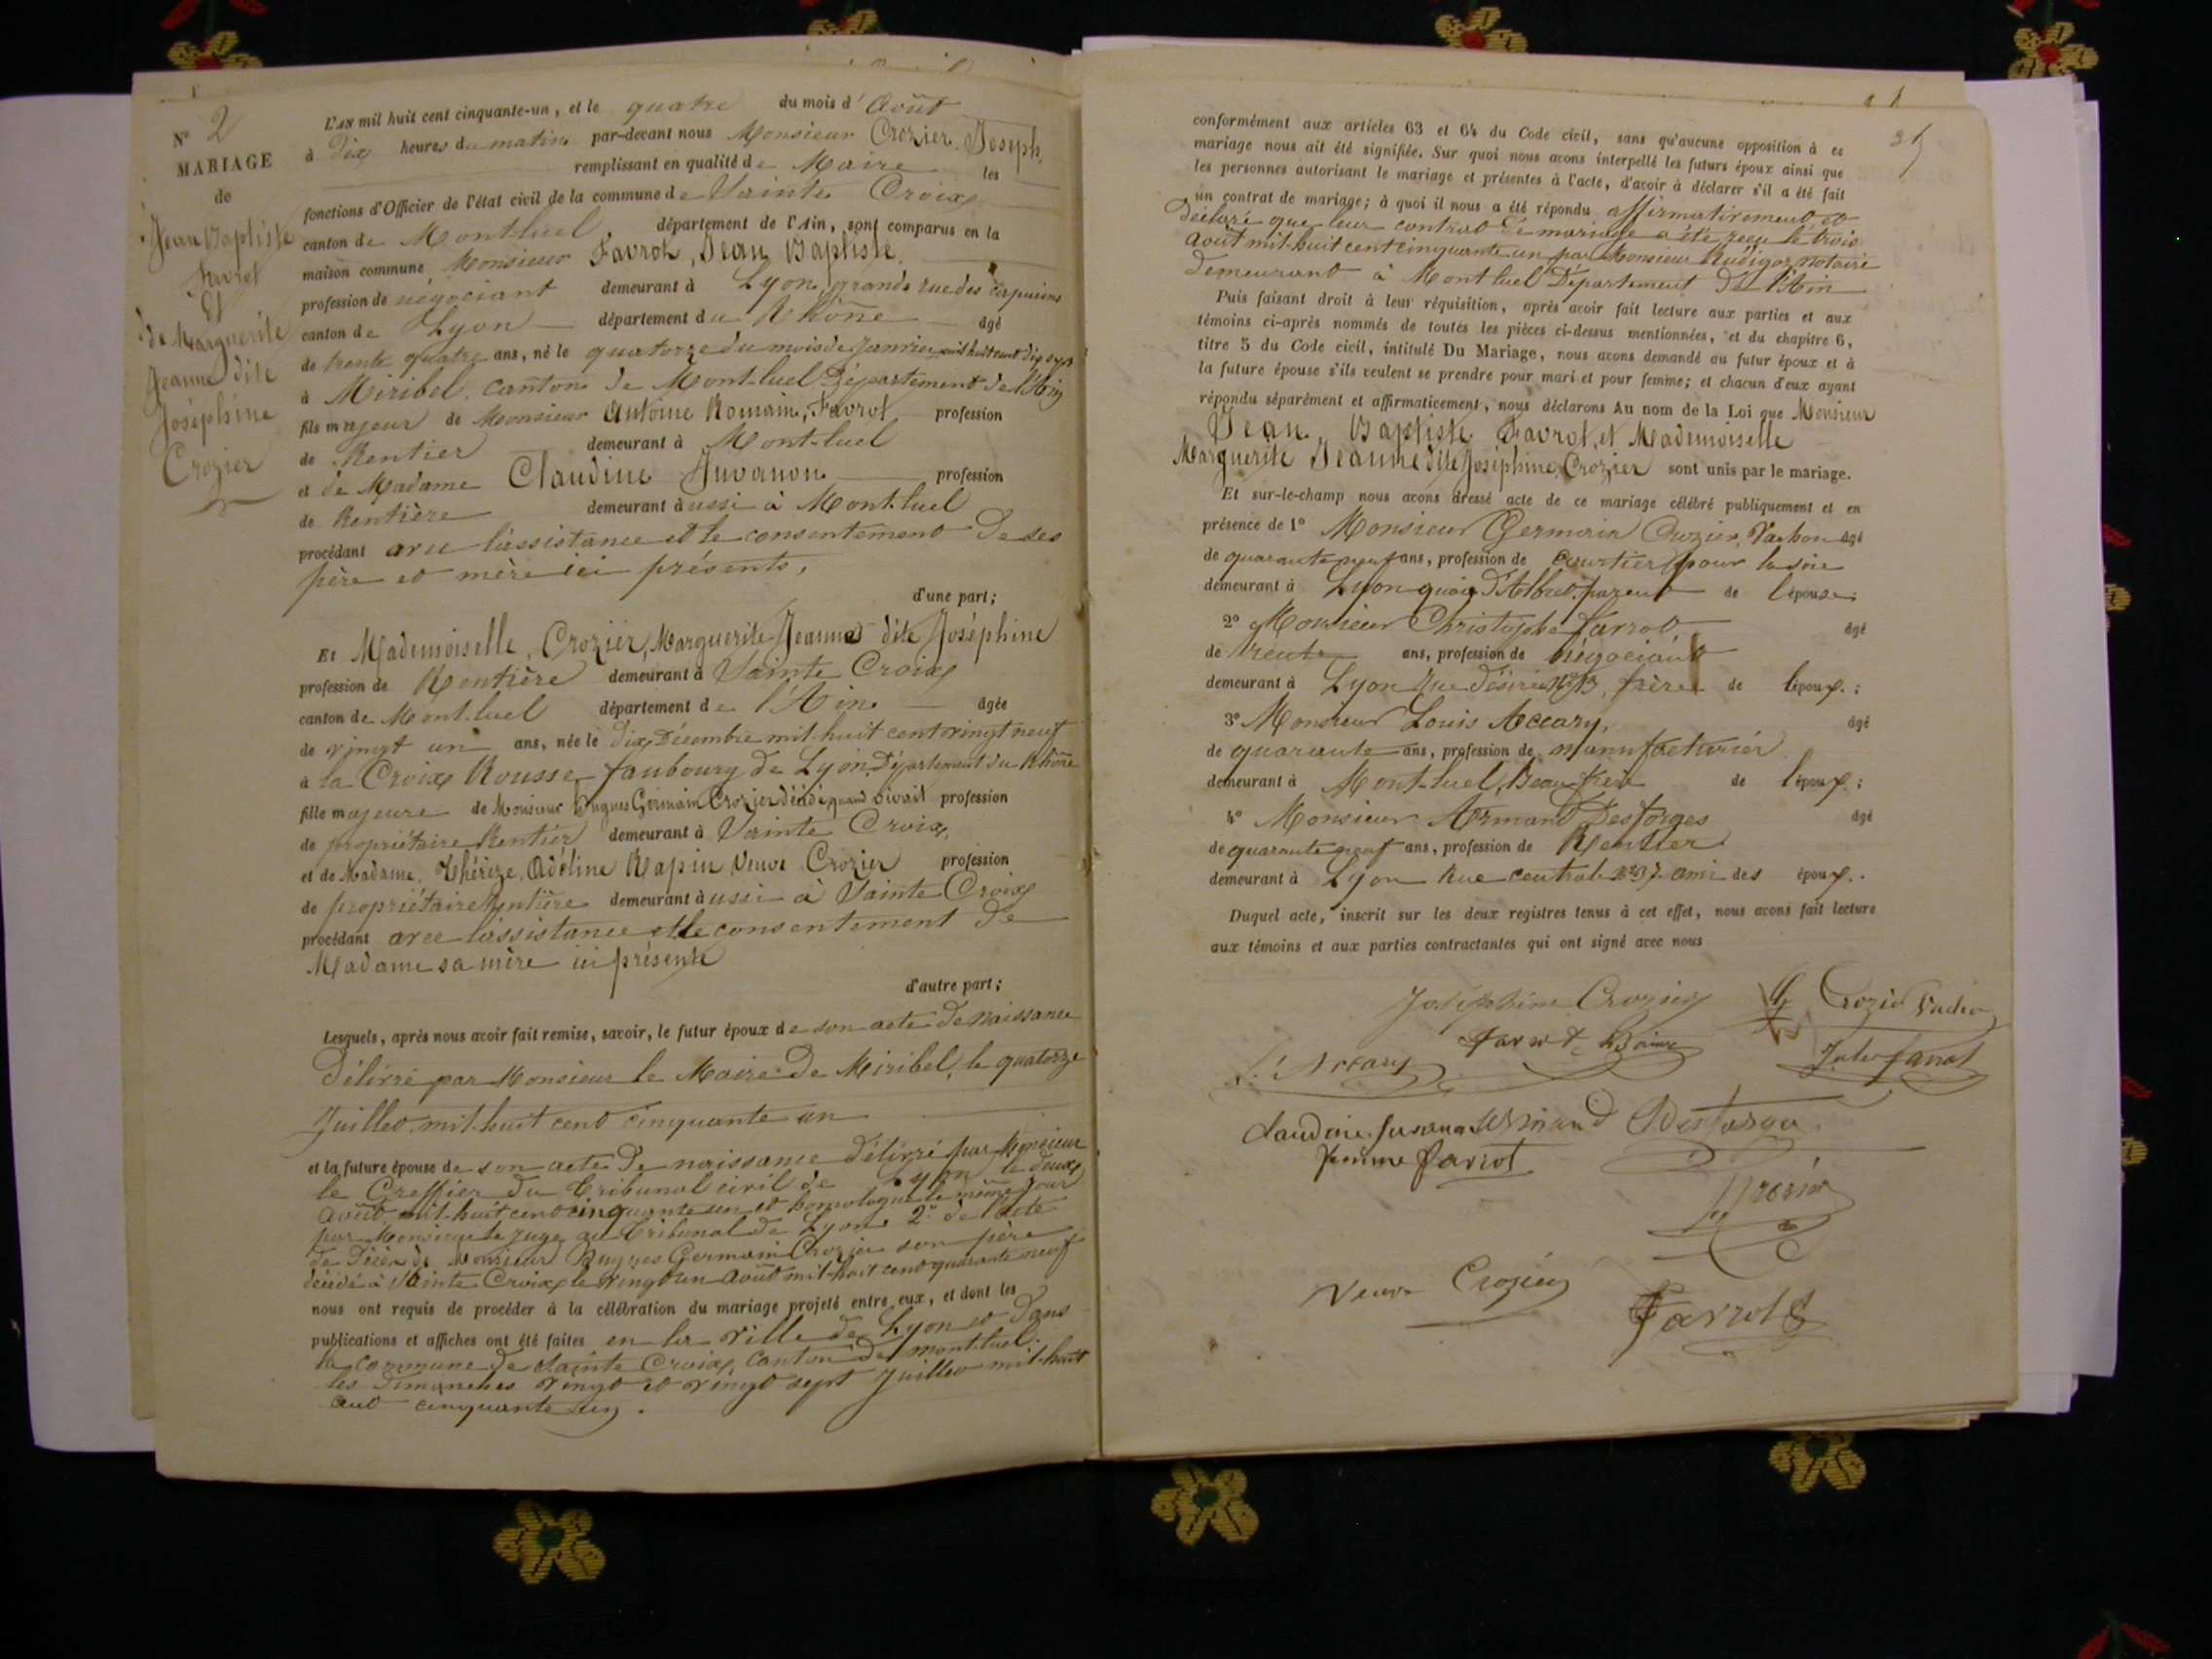 N° 2
MARIAGE
de
Jean Baptiste
Favrot
Et
de Marguerite
Jeanne dite
Joséphine
Crozier
L'AN mil huit cent cinquante-un, et le quatre du mois d'Août
à dix heures du matin par-devant nous Monsieur Crozier Joseph,
remplissant en qualité de Maire les
fonctions d'Officier de l'état civil de la commune de Sainte Croix
canton de Montluel, département de l'Ain, sont comparus en la
maison commune Monsieur Favrot, Jean Baptiste,
profession de négociant demeurant à Lyon, grande rue des Capucins
canton de Lyon département du Rhône âgé
de trente quatre ans, né le quatorze du mois de Janvier mil huit cent dix sept
à Miribel, canton de Mont-luel Département de l'Ain
fils majeur de Monsieur Antoine Romain, Favrot profession
de Rentier demeurant à Mont-luel
et de Madame Claudine Juvanon profession
de Rentière demeurant aussi à Mont-luel
procédant avec l'assistance et le consentement de ses
père et mère ici présents,
d'une part;
Et Mademoiselle, Crozier, Marguerite Jeanne dite Joséphine
profession de Rentière demeurant à Sainte Croix
canton de Mont-luel département de l'Ain âgée
de vingt un ans, née le dix Décembre mil huit cent vingt neuf
à la Croix Rousse faubourg de Lyon, Département du Rhône
fille majeure de Monsieur Hugues Germain Crozier décédé, quand vivait profession
de propriétaire Rentier demeurant à Sainte Croix,
et de Madame, Thérèze, Adéline Rapin Veuve Crozier profession
de propriétaire Rentière demeurant aussi à Sainte Croix
procédant avec l'assistance et le consentement de
Madame sa mère ici présente
d'autre part;
Lesquels, après nous avoir fait remise, savoir, le futur époux de son acte de naissance
délivré par Monsieur le Maire de Miribel, le quatorze
Juillet mil-huit cent cinquante un
et la future épouse de son acte de naissance délivré par Monsieur
le Greffier du Tribunal civil de Lyon le deux
août, mil-huit cent cinquante un et homologué le même jour
par Monsieur le Juge au Tribunal de Lyon. 2° de l'acte
de Décès de Monsieur Hugues Germain Crozier son père
décédé à Sainte Croix le vingt un Août mil-huit cent quarante neuf
nous ont requis de procéder à la célébration du mariage projeté entre eux, et dont les
publications et affiches ont été faites en la ville de Lyon et dans
la commune de Sainte Croix, canton de montluel.
les dimanches vingt et vingt sept Juillet mil-huit
cent cinquante un.
conformément aux articles 63 et 64 du Code civil, sans qu'aucune opposition à ce
mariage nous ait été signifiée. Sur quoi nous avons interpellé les futurs époux ainsi que
les personnes autorisant le mariage et présentes à l'acte, d'avoir à déclarer s'il a été fait
un contrat de mariage; à quoi il nous a été répondu affirmativement et
déclaré que leur contrat de mariage a été reçu le trois
Août mil-huit cent cinquante un par Monsieur notaire
demeurant à Mont luel Département de l'Ain
Puis faisant droit à leur réquisition, après avoir fait lecture aux parties et aux
témoins ci-après nommés de toutes les pièces ci-dessus mentionnées, et du chapitre 6,
titre 5 du Code civil, intitulé Du Mariage, nous avons demandé au futur époux et à
la future épouse s'ils veulent se prendre pour mari et pour femme; et chacun d'eux ayant
répondu séparément et affirmativement, nous déclarons Au nom de la Loi que Monsieur
Jean Baptiste Favrot, et Mademoiselle
Marguerite Jeanne dite Joséphine Crozier sont unis par le mariage.
Et sur-le-champ nous avons dressé acte de ce mariage célébré publiquement et en
présence de 1° Monsieur Germain Crozier, Vachon âgé
de quarante neuf ans, profession de courtier pour la soie
demeurant à Lyon quai d'Albret, parent de l'épouse;
2° Monsieur Christophe Favrot âgé
de trente ans, profession de négociant
demeurant à Lyon Rue Désirée N° 13, frère de l'époux;
3° Monsieur Louis Accary, âgé
de quarante ans, profession de manufacturier
demeurant à Mont-luel, Beau-frère de l'époux;
4° Monsieur Armand Desforges âgé
de quarante neuf ans, profession de Rentier
demeurant à Lyon Rue centrale ami des époux.
Duquel acte, inscrit sur les deux registres tenus à cet effet, nous avons fait lecture
aux témoins et aux parties contractantes qui ont signé avec nous
Joséphine Crozier G Crozier Vachon
Favrot
L. Accary Jules Favrot
Claudine Juvanon Armand Desforges
femme Favrot
Crozier
Veuve Crozier Favrot